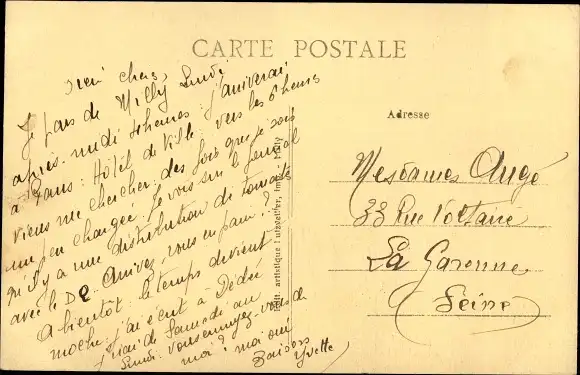 CARTE POSTALE
chers,
Je pars de Milly Lundi
après-midi 4 heures: j'arriverai
à Paris: Hôtel de Ville vers les 6 heures
viens me chercher, des fois que je sois
un peu chargée. Je vois sur le journal
qu'il y a une distribution de tomates
avec le DQ. Arrivez vous en pain?
A bientôt: le temps devient
moche: j'ai écrit à Dédée
j'irai Samedi au
Lundi: vous ennuyez vous de
moi? moi oui
Baisers
Yvette
Edit. artistique Lutzgetter, impr. Milly
Adresse
Mesdames Augé
33 Rue Voltaire
La Garenne
Seine